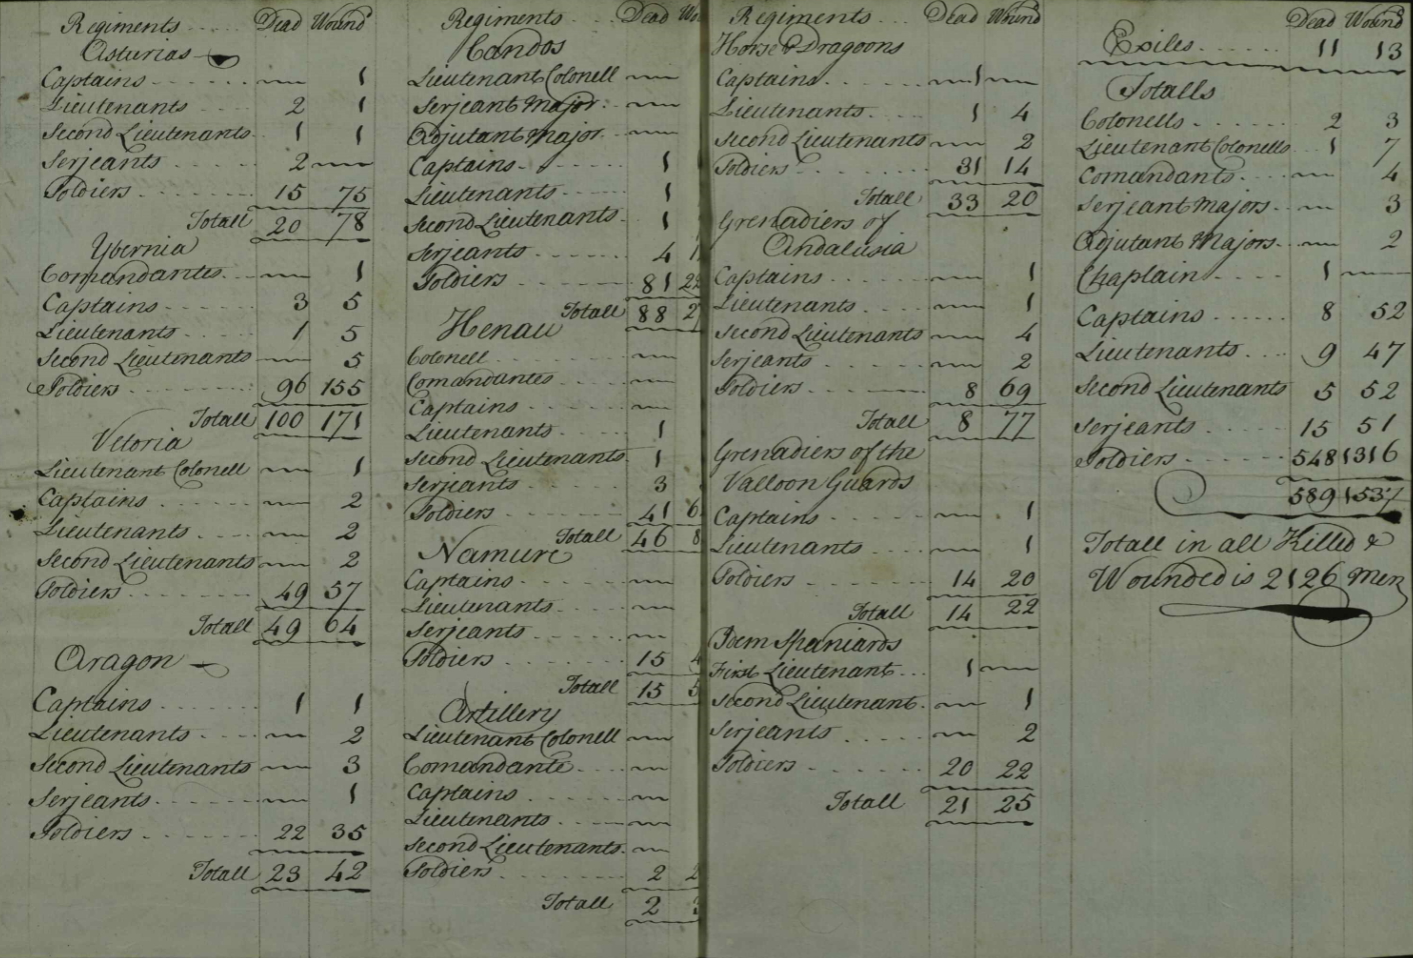 Regiments ..... Dead Wound
Asturias
Captains ..... — 1
Lieutenants .... 2 1
Second Lieutenants. 1 1
Serjeants ..... 2 —
Soldiers ..... 15 75
Totall 20 78
Ybernia
Comandantes. — 1
Captains ..... 3 5
Lieutenants .... 1 5
Second Lieutenants — 5
Soldiers ..... 96 155
Totall 100 171
Vetoria
Lieutenant Colonell — 1
Captains ..... — 2
Lieutenants .... — 2
Second Lieutenants — 2
Soldiers ..... 49 57
Totall 49 64
Aragon
Captains ..... 1 1
Lieutenants .... — 2
Second Lieutenants — 3
Serjeants ..... — 1
Soldiers ..... 22 35
Totall 23 42
Regiments .... Dead Wo
Candos
Lieutenant Colonell —
Serjeant Major. —
Adjutant Major. —
Captains ..... 1
Lieutenants .... 1
Second Lieutenants. 1
Serjeants ..... 4 1
Soldiers ..... 81 22
Totall 88 2
Henau
Colonell ..... —
Comandantes .... —
Captains ..... —
Lieutenants .... 1
Second Lieutenants. 1
Serjeants ..... 3
Soldiers ..... 41 6
Totall 46 8
Namure
Captains ..... —
Lieutenants .... —
Serjeants ..... —
Soldiers ..... 15 4
Totall 15 5
Artillery
Lieutenant Colonell —
Comandante .... —
Captains ..... —
Lieutenants .... —
Second Lieutenants. —
Soldiers ..... 2 2
Totall 2 3
Regiments ... Dead Wound
Horse & Dragoons
Captains ..... 1 —
Lieutenants .... 1 4
Second Lieutenants — 2
Soldiers ..... 31 14
Totall 33 20
Grenadiers of
Andalusia
Captains ..... — 1
Lieutenants .... — 1
Second Lieutenants — 4
Serjeants ..... — 2
Soldiers ..... 8 69
Totall 8 77
Grenadiers of the
Valloon Guards
Captains ..... — 1
Lieutenants .... — 1
Soldiers ..... 14 20
Totall 14 22
Idem Spaniards
First Lieutenant ... 1 —
Second Lieutenant. — 1
Serjeants ..... — 2
Soldiers ..... 20 22
Totall 21 25
Dead Wound
Exiles ..... 11 13
Totalls
Colonells ..... 2 3
Lieutenant Colonells .. 1 7
Comandants .... — 4
Serjeant Majors .. — 3
Adjutant Majors .. — 2
Chaplain ..... 1 —
Captains ..... 8 52
Lieutenants .... 9 47
Second Lieutenants 5 52
Serjeants ..... 15 51
Soldiers ..... 548 1316
589 1537
Totall in all Killed &
Wounded is 2126 Men